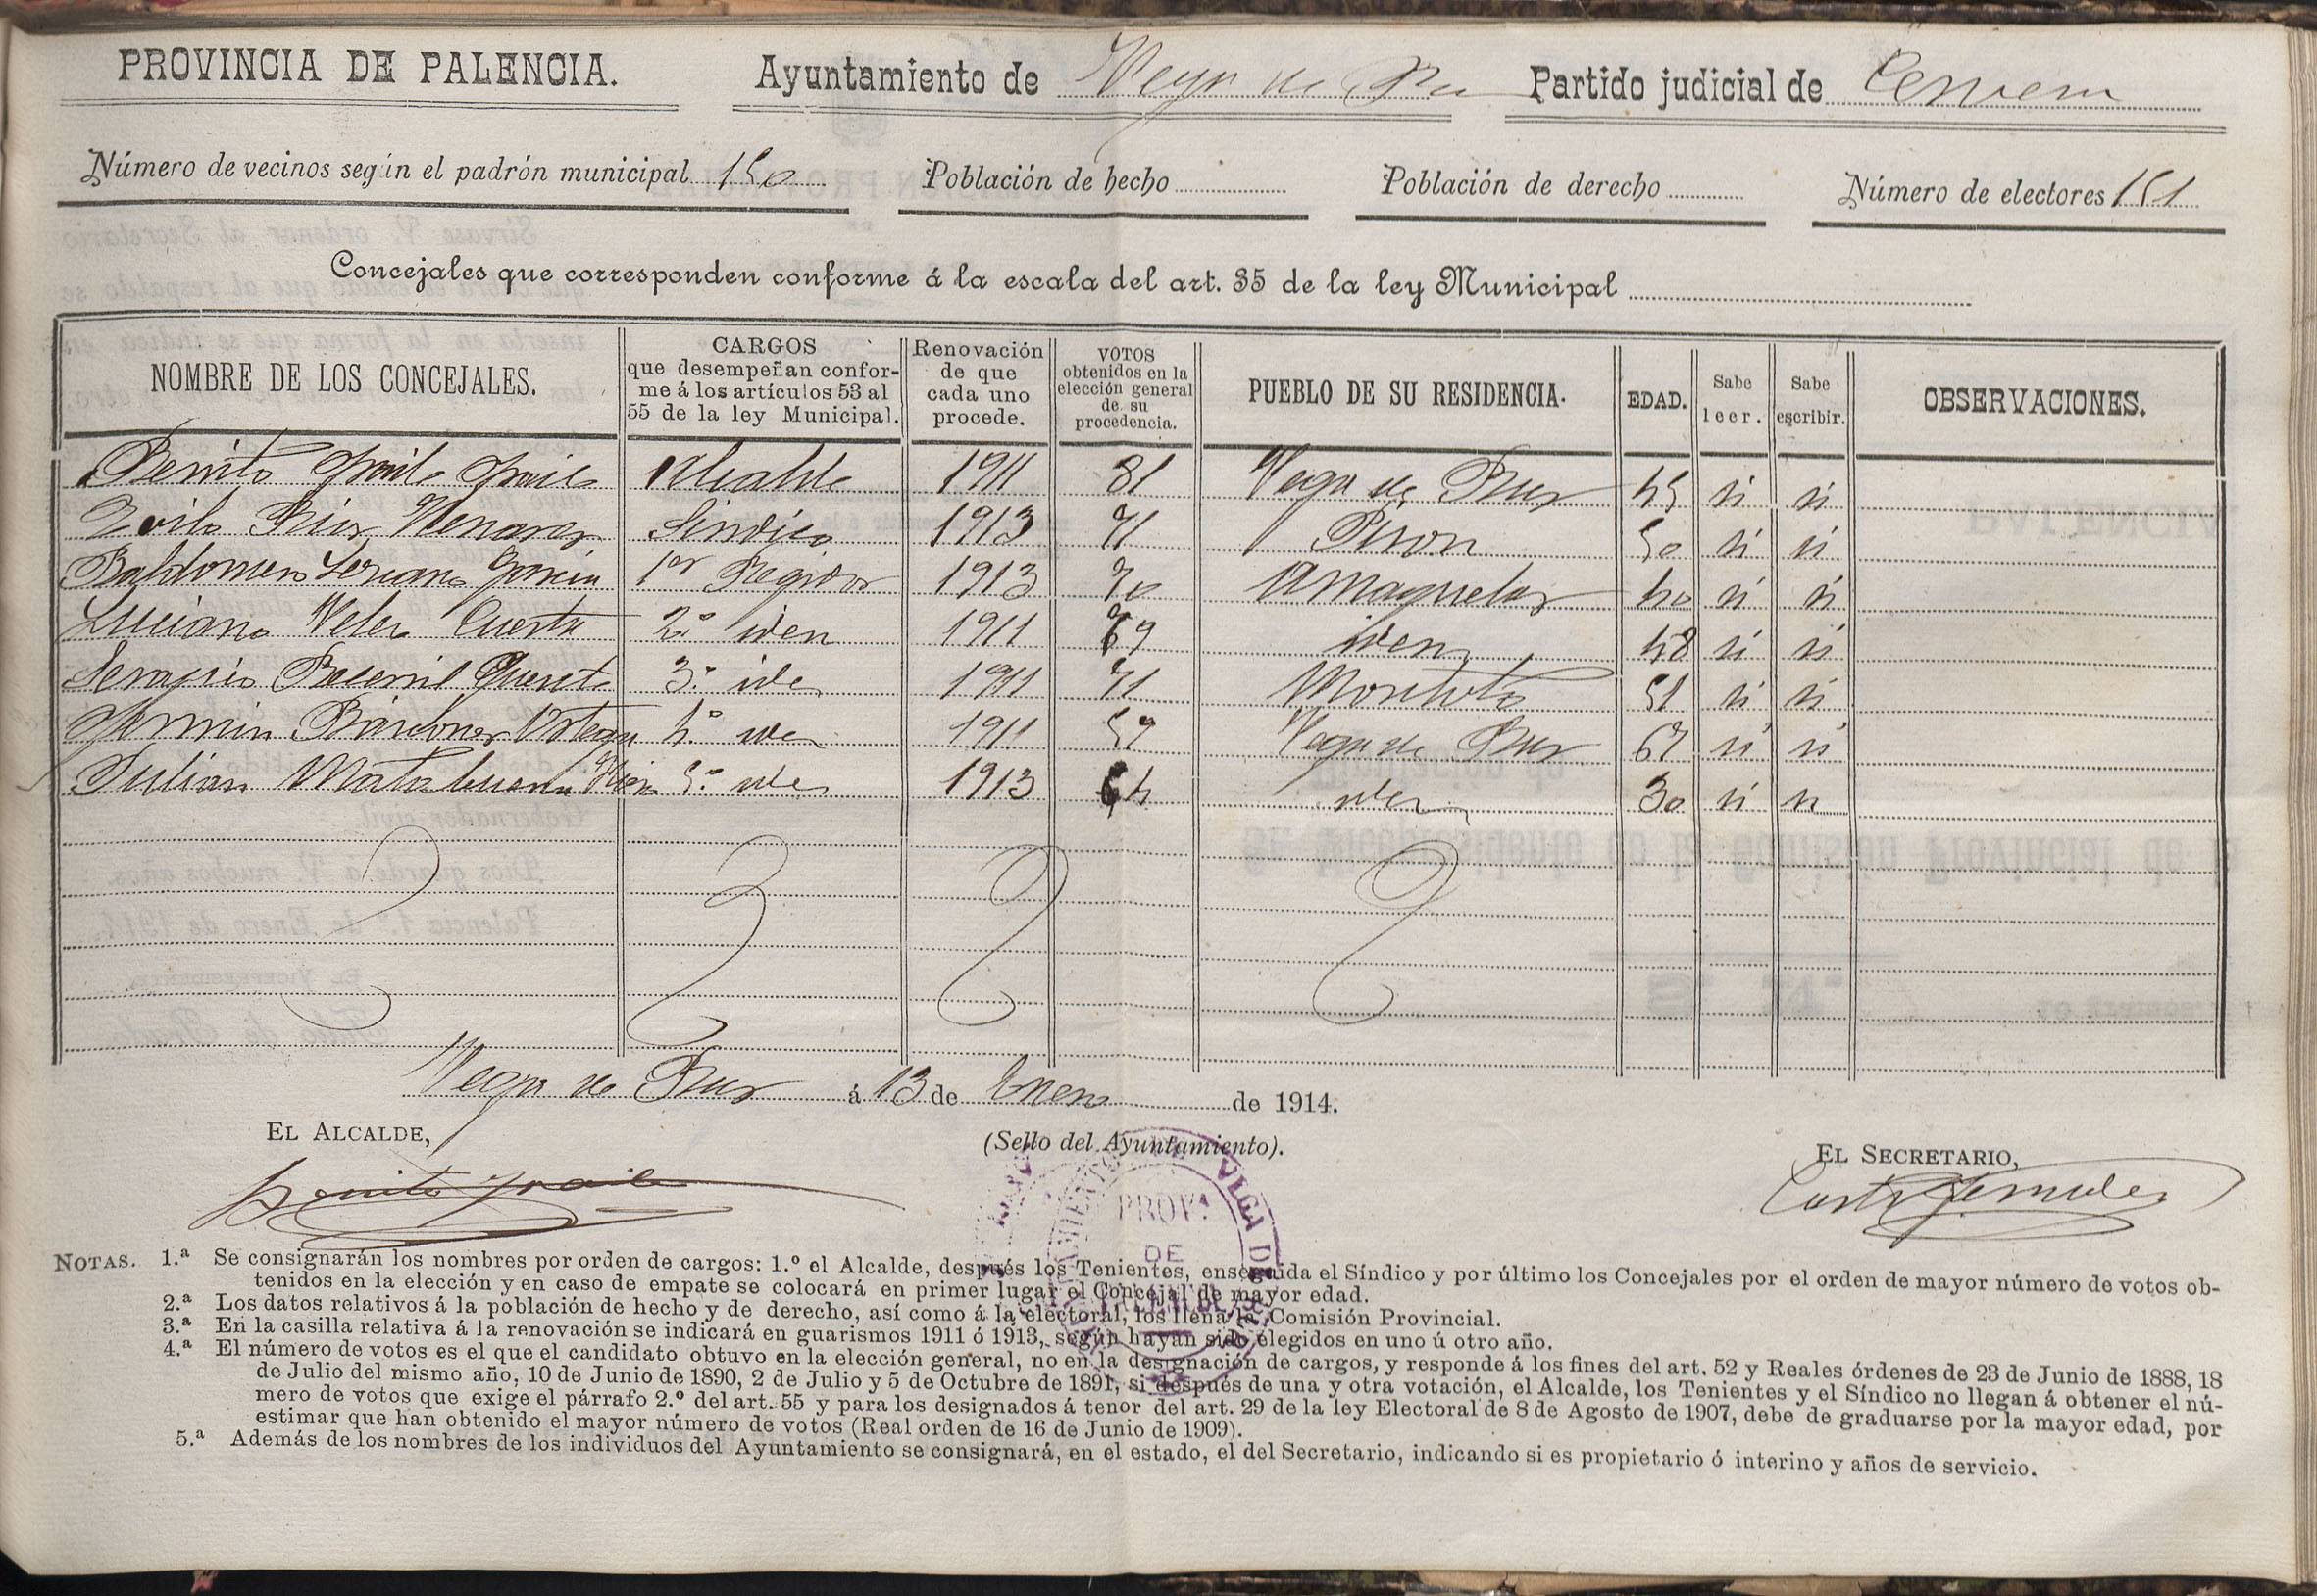 PROVINCIA DE PALENCIA. Ayuntamiento de Vega de Bur Partido judicial de Cervera
Número de vecinos según el padrón municipal 150 Población de hecho Población de derecho Número de electores 151
Concejales que corresponden conforme á la escala del art. 35 de la ley Municipal
NOMBRE DE LOS CONCEJALES. CARGOS que desempeñan conforme á los artículos 53 al 55 de la ley Municipal. Renovación de que cada uno procede. VOTOS obtenidos en la elección general de su procedencia. PUEBLO DE SU RESIDENCIA. EDAD. Sabe leer. Sabe escribir. OBSERVACIONES.
Benito Fraile Fraile Alcalde 1911 81 Vega de Bur 45 si si
Zoilo Ruiz Henares Sindico 1913 71 Pison 50 si si
Baldomero Soriano Garcia 1er Regidor 1913 70 Amayuelas 40 si si
Luciano Velez Cuesta 2º iden 1911 69 iden 48 si si
Serapio Becerril 3º iden 1911 71 51 si si
Fermin Bardones Ortega 4º iden 1911 59 Vega de Bur 67 si si
Julian Matabuena 5º iden 1913 64 iden 30 si si
Vega de Bur á 13 de Enero de 1914.
EL ALCALDE, (Sello del Ayuntamiento). EL SECRETARIO,
Benito Fraile
PROV.ª
DE
NOTAS. 1.ª Se consignarán los nombres por orden de cargos: 1.º el Alcalde, después los Tenientes, enseguida el Síndico y por último los Concejales por el orden de mayor número de votos ob-
tenidos en la elección y en caso de empate se colocará en primer lugar el Concejal de mayor edad.
2.ª Los datos relativos á la población de hecho y de derecho, así como á la electoral, los llena la Comisión Provincial.
3.ª En la casilla relativa á la renovación se indicará en guarismos 1911 ó 1913, según hayan sido elegidos en uno ú otro año.
4.ª El número de votos es el que el candidato obtuvo en la elección general, no en la designación de cargos, y responde á los fines del art. 52 y Reales órdenes de 23 de Junio de 1888, 18
de Julio del mismo año, 10 de Junio de 1890, 2 de Julio y 5 de Octubre de 1891, si después de una y otra votación, el Alcalde, los Tenientes y el Síndico no llegan á obtener el nú-
mero de votos que exige el párrafo 2.º del art. 55 y para los designados á tenor del art. 29 de la ley Electoral de 8 de Agosto de 1907, debe de graduarse por la mayor edad, por
estimar que han obtenido el mayor número de votos (Real orden de 16 de Junio de 1909).
5.ª Además de los nombres de los individuos del Ayuntamiento se consignará, en el estado, el del Secretario, indicando si es propietario ó interino y años de servicio.